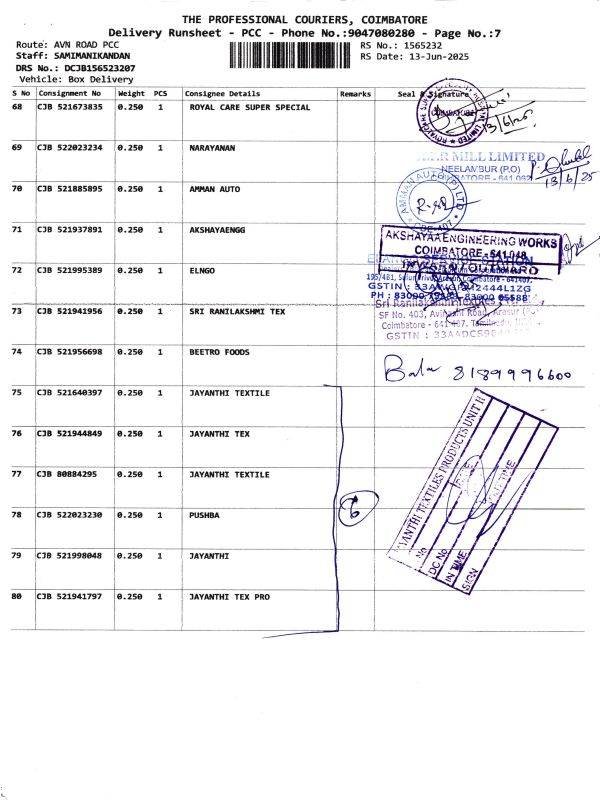 THE PROFESSIONAL COURIERS, COIMBATORE
Delivery Runsheet - PCC - Phone No.:9047080280 - Page No.:7
Route: AVN ROAD PCC
RS No.: 1565232
Staff: SAMIMANIKANDAN
RS Date: 13-Jun-2025
DRS No.: DCJB156523207
Vehicle: Box Delivery
S No Consignment No Weight PCS Consignee Details Remarks Seal & Signature
68 CJB 521673835 0.250 1 ROYAL CARE SUPER SPECIAL
13/6/25
69 CJB 522023234 0.250 1 NARAYANAN
MILL LIMITED
NEELAMBUR (P.O)
13/6/25
70 CJB 521885895 0.250 1 AMMAN AUTO
AMMAN AUTO (P) LTD
71 CJB 521937891 0.250 1 AKSHAYAENGG
AKSHAYAA ENGINEERING WORKS
COIMBATORE - 641 048
72 CJB 521995389 0.250 1 ELNGO
73 CJB 521941956 0.250 1 SRI RANILAKSHMI TEX
SF No. 403, Avinashi Road, Arasur
Coimbatore - 641 407.
74 CJB 521956698 0.250 1 BEETRO FOODS
Bala 8189996600
75 CJB 521640397 0.250 1 JAYANTHI TEXTILE
76 CJB 521944849 0.250 1 JAYANTHI TEX
77 CJB 80884295 0.250 1 JAYANTHI TEXTILE
78 CJB 522023230 0.250 1 PUSHBA
6
79 CJB 521998048 0.250 1 JAYANTHI
80 CJB 521941797 0.250 1 JAYANTHI TEX PRO
JAYANTHI TEXTILES PRODUCTS UNIT II
No
DC No
IN TIME
SIGN